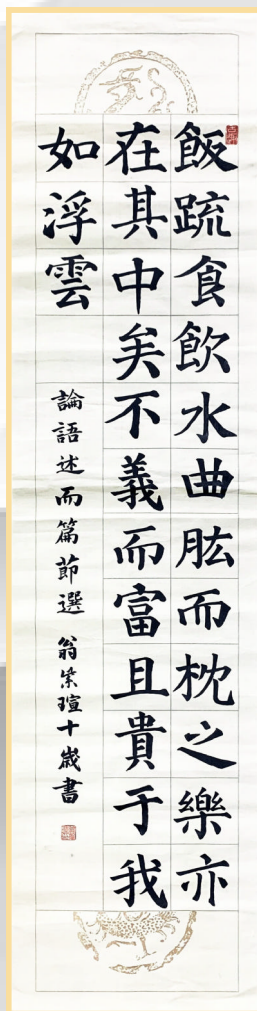 飯䟽食飲水曲肱而枕之樂亦
在其中矣不義而富且貴于我
如浮雲
論語述而篇節選 翁紫瑄十歲書